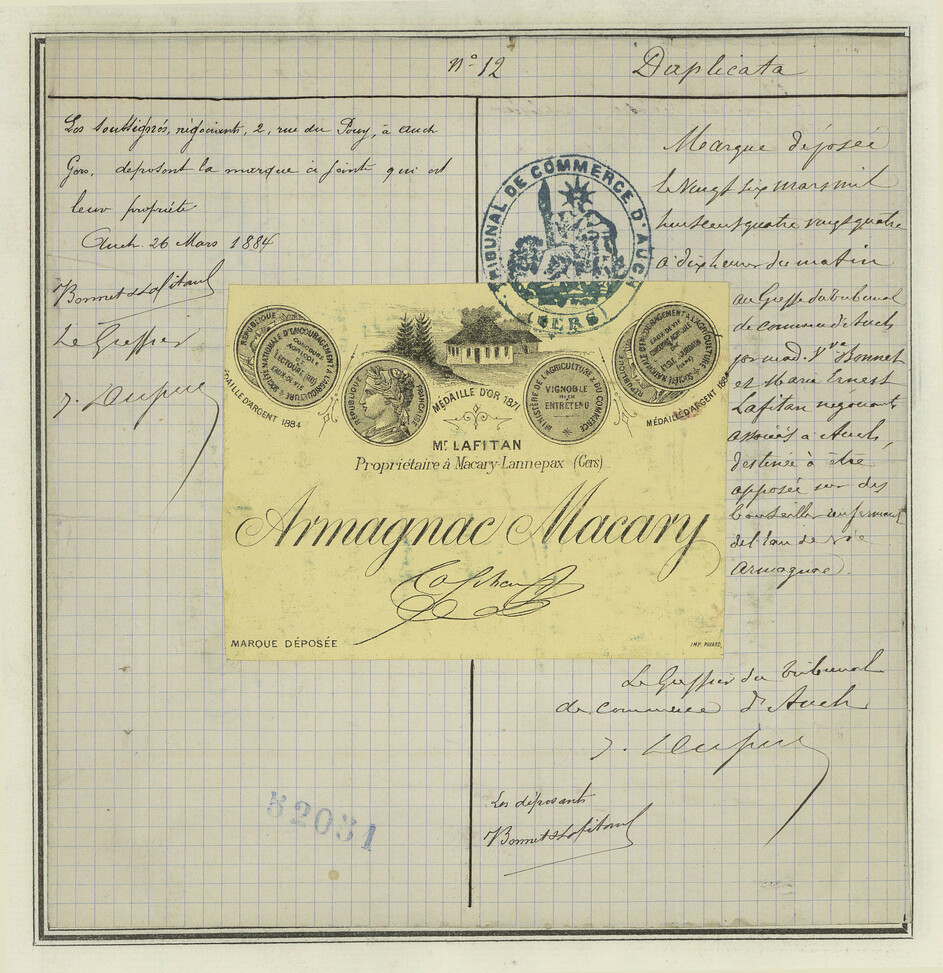 N° 12
Duplicata
Les soussignés, négociants, 2, rue du Pouy, à Auch
Gers, déposent la marque ci jointe qui est
leur propriété
Auch 26 Mars 1884
Bonnet & Lafitan
Le Greffier
J. Dupuy
Marque déposée
le vingt six mars mil
huit cent quatre vingt quatre
à dix heures du matin
au Greffe du tribunal
de commerce d'Auch
par mad. Vve Bonnet
et Marie Ernest
Lafitan negociants
associés à Auch,
destinée à être
apposée sur des
bouteilles renfermant
de l'eau de vie
Armagnac
TRIBUNAL DE COMMERCE D'AUCH
(GERS)
RÉPUBLIQUE
SOCIÉTÉ NATIONALE D'ENCOURAGEMENT A L'AGRICULTURE
CONCOURS
AGRICOLE
DE
LECTOURE
EAUX-DE-VIE
MÉDAILLE D'ARGENT 1884
RÉPUBLIQUE FRANÇAISE
MÉDAILLE D'OR 1871
MINISTÈRE DE L'AGRICULTURE & DU COMMERCE
VIGNOBLE
BIEN
ENTRETENU
SOCIÉTÉ NATIONALE D'ENCOURAGEMENT A L'AGRICULTURE
EAUX-DE-VIE
MÉDAILLE D'ARGENT
MR LAFITAN
Propriétaire à Macary-Lannepax (Gers)
Armagnac Macary
Lafitan
MARQUE DÉPOSÉE
IMP. PIVARD
Le Greffier du tribunal
de commerce d'Auch
J. Dupuy
Les déposants
Bonnet & Lafitan
52031